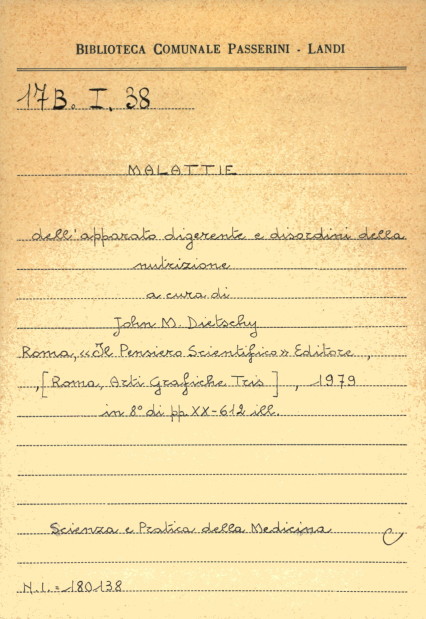 BIBLIOTECA COMUNALE PASSERINI - LANDI
17B. I. 38
MALATTIE
dell'apparato digerente e disordini della
nutrizione
a cura di
John M. Dietschy
Roma, «Il Pensiero Scientifico» Editore,
,[Roma, Arti Grafiche Tris], 1979
in 8° di pp XX-612 ill.
Scienza e Pratica della Medicina
C
N.I.=180138